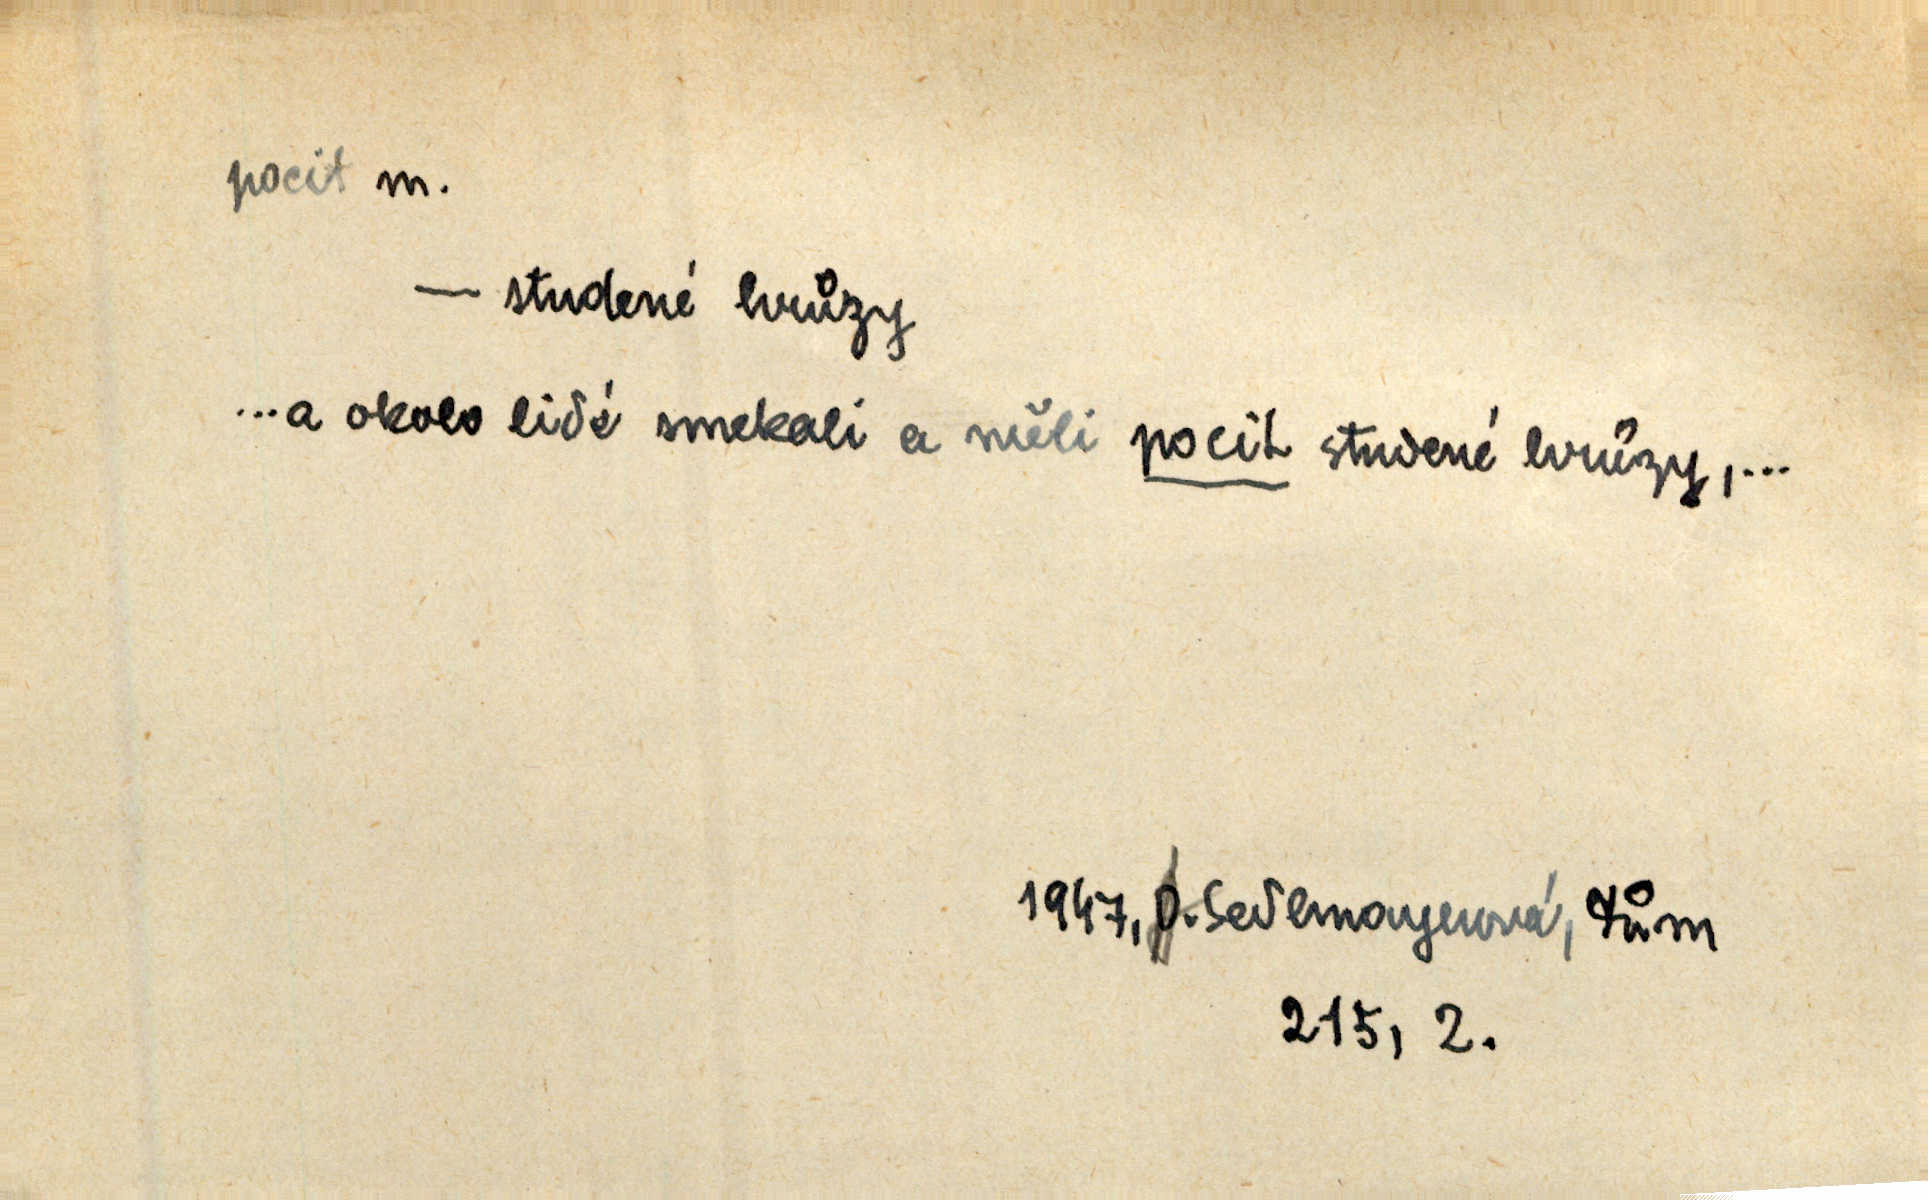 pocit m.
— studené hrůzy
...a okolo lidé smekali a měli pocit studené hrůzy,...
1947, O. Sedlmayerová, Dům
215, 2.